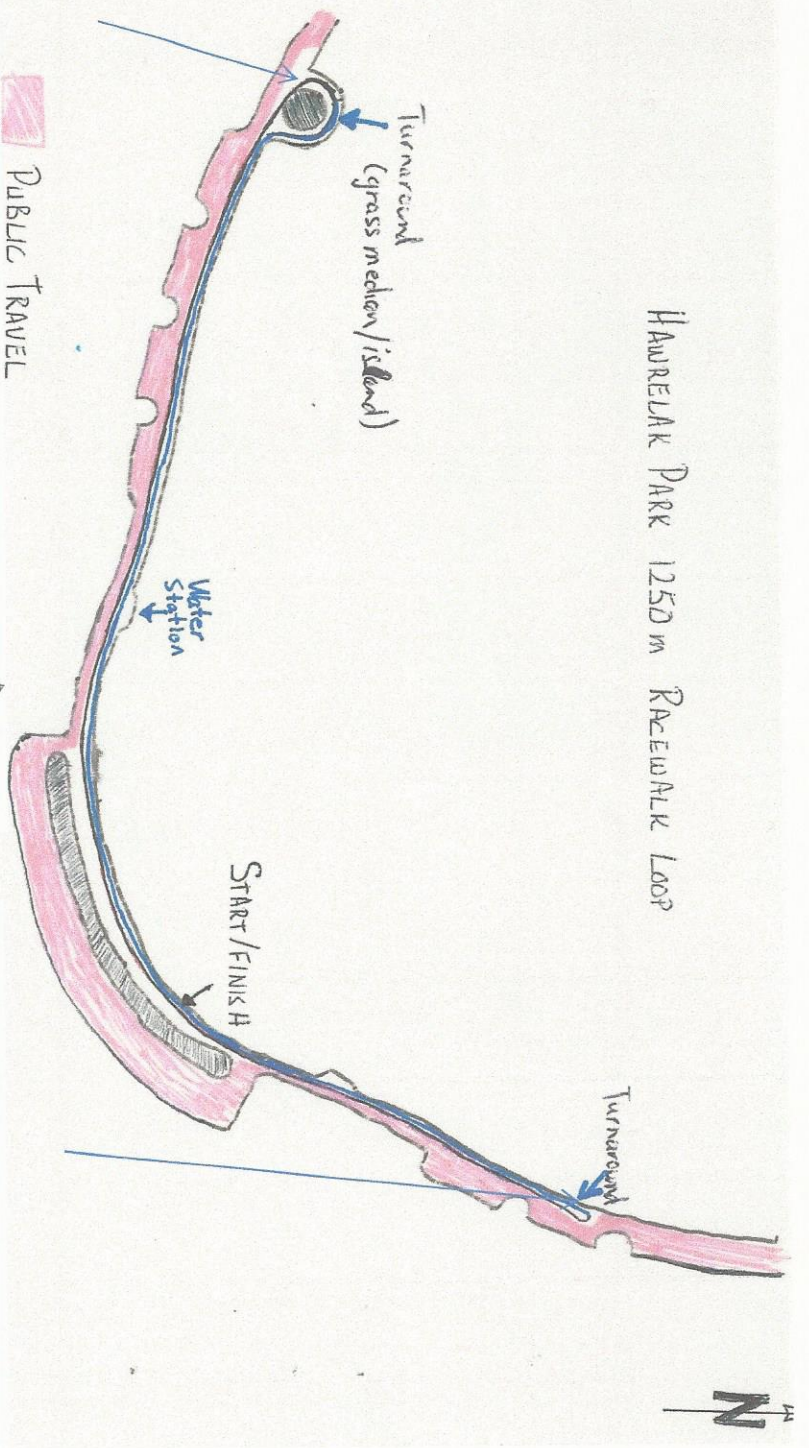 HAWRELAK PARK 1250 m RACEWALK LOOP
N
Turnaround
(grass median/island)
Turnaround
START/FINISH
Water
Station
PUBLIC TRAVEL